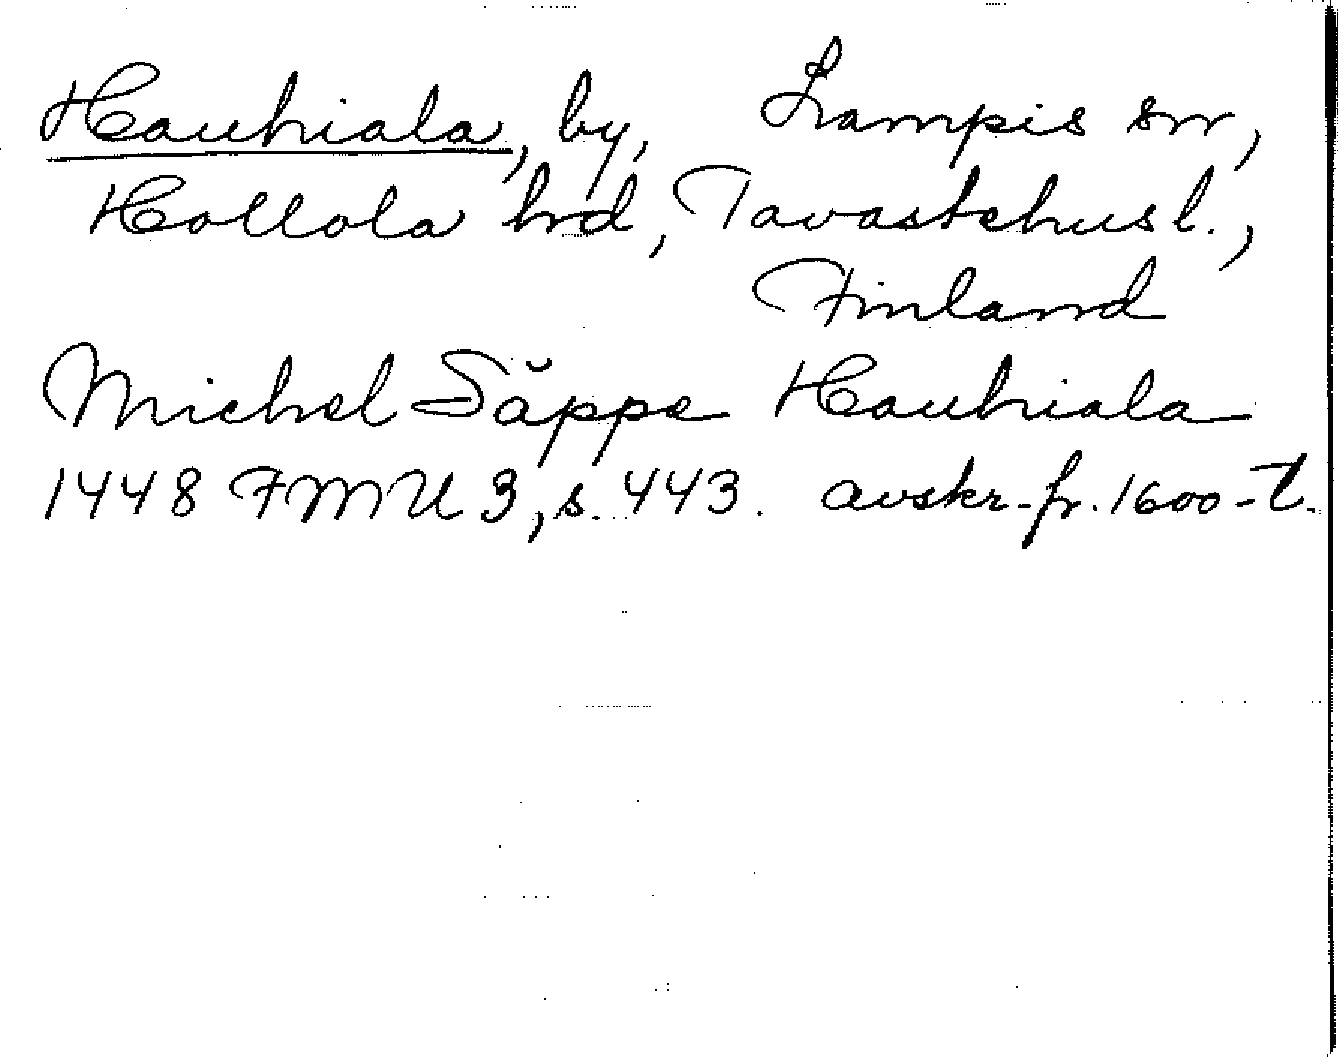 Hauhiala, by, Lampis sn,
Hollola hrd, Tavastehus l.,
Finland
Michel Săppe Hauhiala
1448 FMU 3, s. 443. avskr. fr. 1600-t.